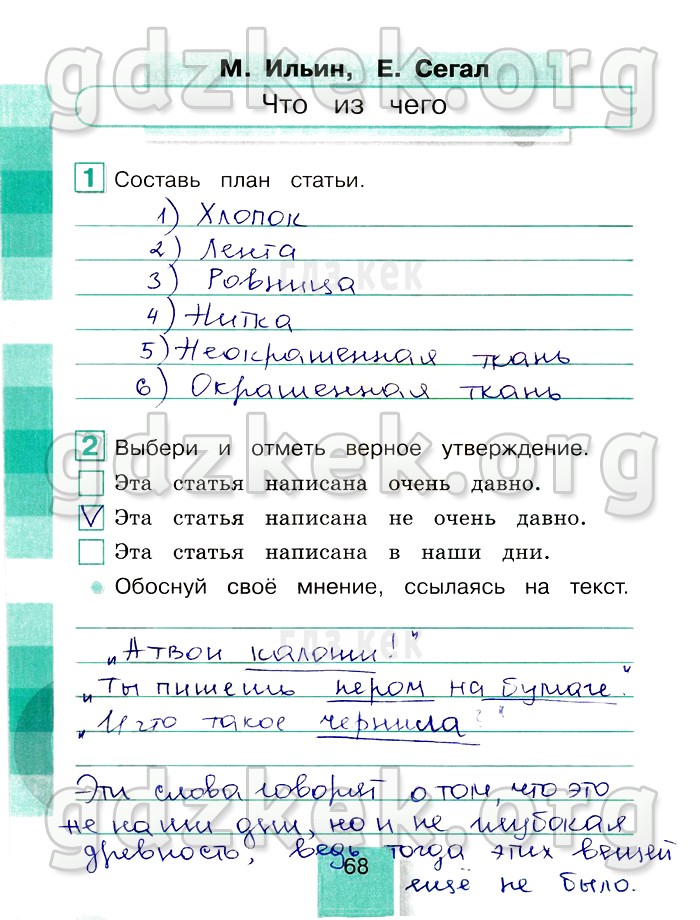 www.gdzkek.org
М. Ильин, Е. Сегал
Что из чего
1 Составь план статьи.
1) Хлопок
2) Лента
гдз кек
3) Ровница
4) Нитка
5) Неокрашенная ткань
6) Окрашенная ткань
www.gdzkek.org
2 Выбери и отметь верное утверждение.
Эта статья написана очень давно.
V Эта статья написана не очень давно.
Эта статья написана в наши дни.
Обоснуй своё мнение, ссылаясь на текст.
гдз кек
„А твои калоши!"
„Ты пишешь пером на бумаге."
„И что такое чернила?"
Эти слова говорят о том, что это
не наши дни, но и не глубокая
древность, ведь тогда этих вещей
www.gdzkek.org
68
ещё не было.